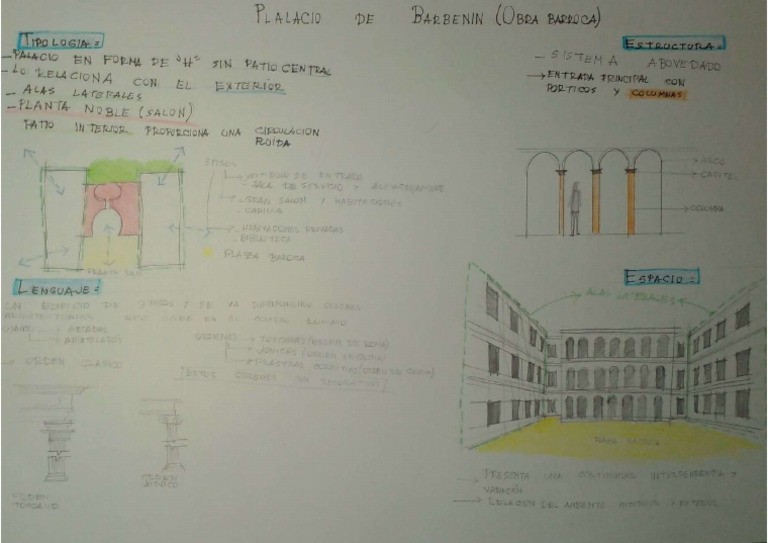 PLALACIO DE BARBENIN (OBRA BARROCA)
TIPOLOGIA:
- PALACIO EN FORMA DE "H" SIN PATIO CENTRAL
- LO RELACIONA CON EL EXTERIOR
- ALAS LATERALES
- PLANTA NOBLE (SALON)
PATIO INTERIOR PROPORCIONA UNA CIRCULACION
FLUIDA
PISOS
VESTIBULO DE ENTRADA
- SALA DE SERVICIO Y ALMACENAMIENTO
- GRAN SALON Y HABITACIONES
- CAPILLA
HABITACIONES PRIVADAS
- BIBLIOTECA
PLAZA BARROCA
LENGUAJE:
UN EDIFICIO DE PISOS Y SE VA
ARCADAS
ORDENES TOSCANAS (ORDEN DE ROMA)
JONICAS (ORDEN
PILASTRAS CORINTIAS
ORDEN CLASICO
ORDEN
TOSCANO
ORDEN
JONICO
ESTRUCTURA:
- SISTEMA ABOVEDADO
→ ENTRADA PRINCIPAL CON
PORTICOS Y COLUMNAS
ARCO
CAPITEL
COLUMNA
ESPACIO:
ALAS LATERALES
PLAZA BARROCA
PRESENTA UNA CONTINUIDAD Y
VARIACION
RELACION DEL AMBIENTE INTERIOR Y EXTERIOR